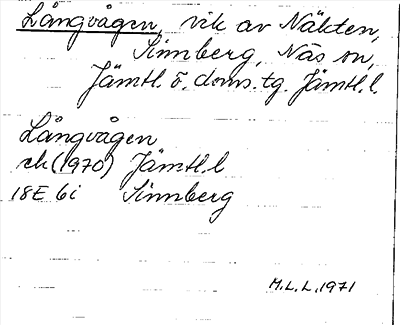 Långvågen, vik av Näkten,
Sinnberg, Näs sn,
Jämtl. ö. doms. tg. Jämtl. l.
Långvågen
ek (1970) Jämtl. l
18E 6i Sinnberg
M.L.L. 1971